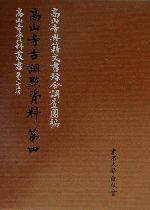 高山寺典籍文書綜合調査團編
高山寺古訓點資料 第四
高山寺資料叢書 第二十二冊
東京大學出版會